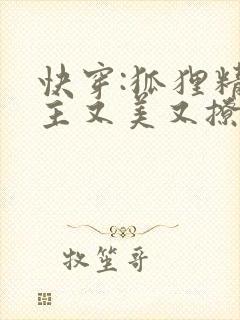 快穿:狐狸精
主又美又撩
牧笙哥